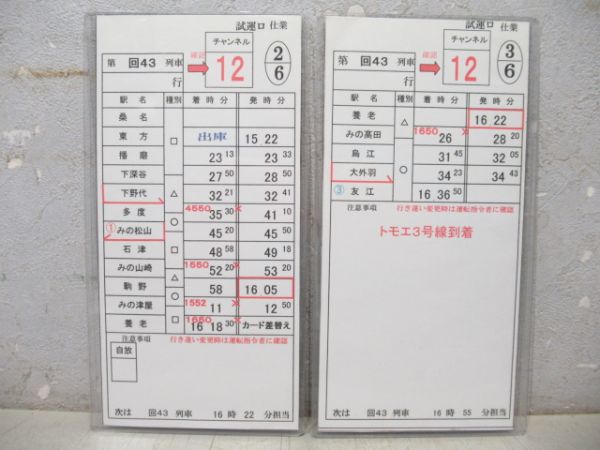 試運ロ 仕業
第 回43 列車
行
確認
チャンネル
12
2
6
駅名 種別 着時分 発時分
桑名
東方 □ 出庫 15 22
播磨 23 13 23 33
下深谷 27 50 28 50
下野代 △ 32 21 32 41
多度 4550 35 30 × 41 10
① みの松山 ○ 45 20 45 50
石津 □ 48 58 49 18
みの山崎 1550 52 20 × 53 20
駒野 △ 58 16 05
みの津屋 ○ 1552 11 × 12 50
養老 □ 1650 16 18 30 × カード差替え
注意事項 行き違い変更時は運転指令者に確認
自放
次は 回43 列車 16 時 22 分担当
試運ロ 仕業
第 回43 列車
行
確認
チャンネル
12
3
6
駅名 種別 着時分 発時分
養老 △ 16 22
みの高田 1650 26 × 28 20
烏江 ○ 31 45 32 05
大外羽 34 23 34 43
③ 友江 16 36 50
注意事項 行き違い変更時は運転指令者に確認
トモエ3号線到着
次は 回43 列車 16 時 55 分担当